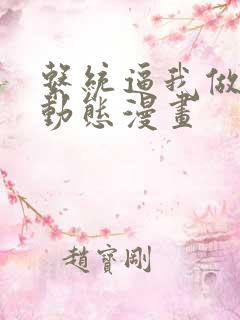 繫統逼我做
動態漫畫
趙寶剛